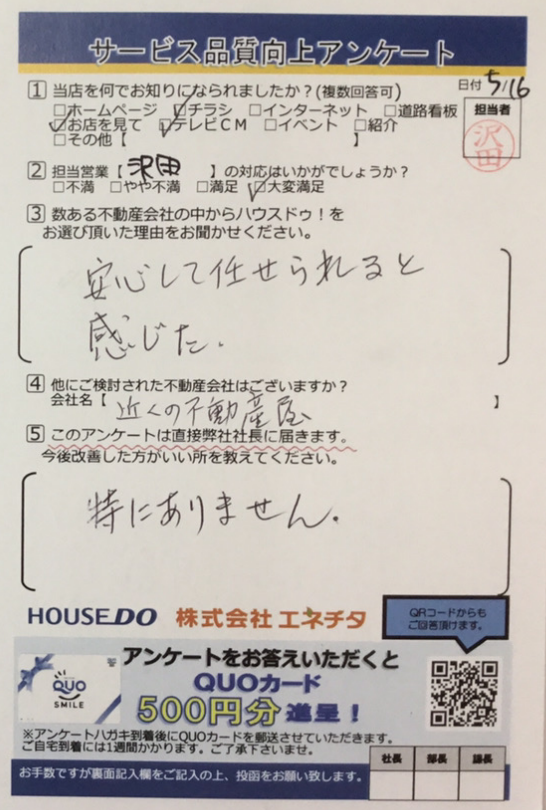 サービス品質向上アンケート
日付 5/16
1 当店を何でお知りになられましたか?(複数回答可)
□ホームページ ☑チラシ □インターネット □道路看板
☑お店を見て ☑テレビCM □イベント □紹介
□その他【 】
担当者
沢田
2 担当営業【 沢田 】の対応はいかがでしょうか?
□不満 □やや不満 □満足 ☑大変満足
3 数ある不動産会社の中からハウスドゥ!を
お選び頂いた理由をお聞かせください。
安心して任せられると
感じた.
4 他にご検討された不動産会社はございますか?
会社名【 近くの不動産屋 】
5 このアンケートは直接弊社社長に届きます。
今後改善した方がいい所を教えてください。
特にありません.
HOUSEDO 株式会社 エネチタ
QRコードからも
ご回答頂けます。
アンケートをお答えいただくと
QUOカード
500円分 進呈!
QUO
SMILE
※アンケートハガキ到着後にQUOカードを郵送させていただきます。
ご自宅到着には1週間かかります。ご了承下さいませ。
社長 部長 課長
お手数ですが裏面記入欄をご記入の上、投函をお願い致します。